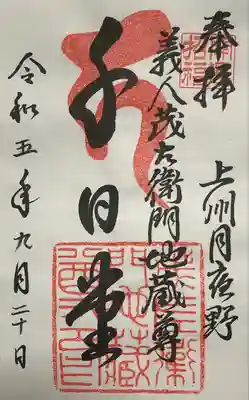 奉拝
上州月夜野
義人茂左衛門地蔵尊
千日堂
令和五年九月二十日